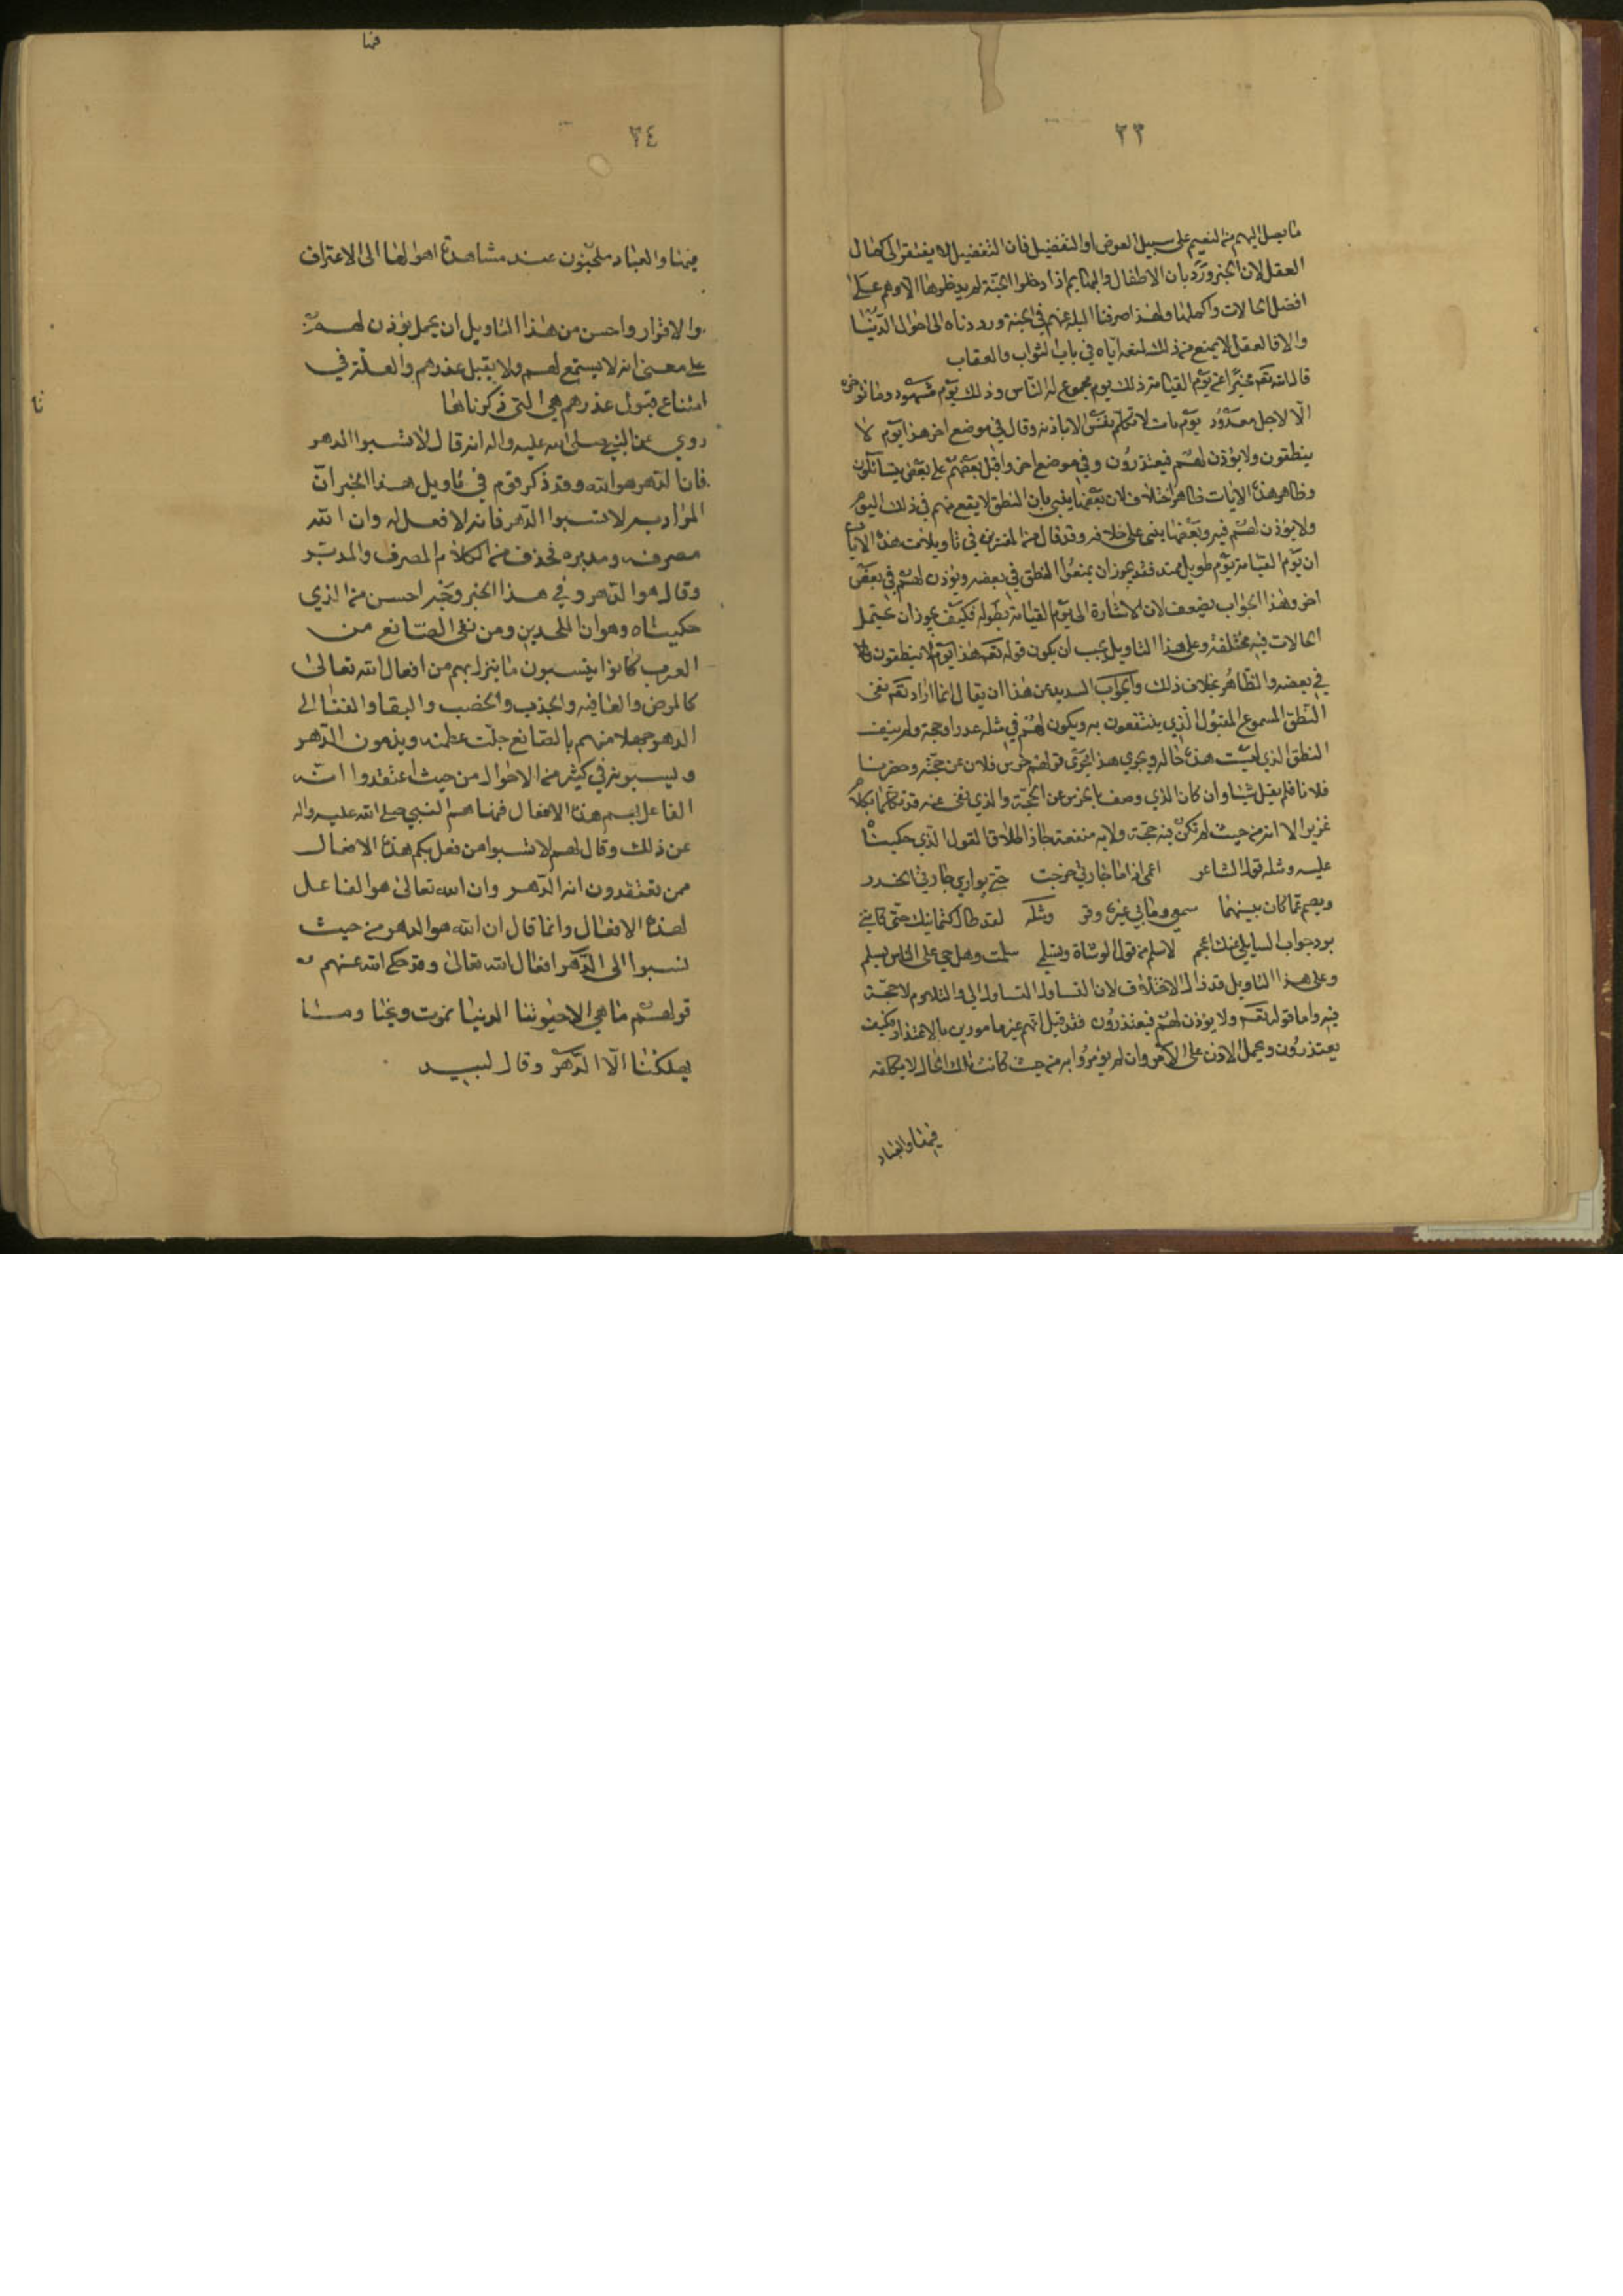 ٢٣
ما يصل اليهم من النعيم على سبيل العوض او التفضيل فان التفضيل لا يفتقر الى كمال
العقل لان الخبر ورد بان الاطفال والبهايم اذا دخلوا الجنة لم يدخلوها الا وهم على
افضل الحالات واكملها ولهذا صرفنا البله عنهم في الجنة ورددناه الى احوال الدنيا
والا فالعقل لا يمنع من ذلك لمنعه اياه في باب الثواب والعقاب
قال الله تعم مخبرا عن يوم القيامة ذلك يوم مجموع له الناس وذلك يوم مشهود وما نؤخره
الا لاجل معدود يوم يات لا تكلم نفس الا باذنه وقال في موضع اخر هذا يوم لا
ينطقون ولا يؤذن لهم فيعتذرون وفي موضع اخر واقبل بعضهم على بعض يتسائلون
وظاهر هذه الايات ظاهر اختلاف لان بعضها ينبي بان النطق لا يقع منهم في ذلك اليوم
ولا يؤذن لهم فيه وبعضها ينبي على خلافه وقد قال من المفسرين في تاويلات هذه الايات
ان يوم القيامة يوم طويل ممتد فقد يجوز ان يمنعوا النطق في بعضه ويؤذن لهم في بعض
اخر وهذا الجواب يضعف لان الاشارة الى يوم القيامة بطوله فكيف يجوز ان يحتمل
الحالات فيه مختلفة وعلى هذا التاويل يجب ان يكون قوله تعم هذا يوم لا ينطقون
في بعضه والظاهر بخلاف ذلك والجواب السديد عن هذا ان يقال انما اراد تعم نفي
النطق المسموع المقبول الذي ينتفعون به ويكون لهم في مثله عذر او حجة ولم ينف
النطق الذي ليست هذه حاله ويجري هذا مجرى قولهم خرس فلان عن حجته وحضرنا
فلانا فلم يقل شيئا وان كان الذي وصف بالخرس عن الحجة والذي نفى عنه قد تكلم بكلام
غزير الا انه من حيث لم تكن فيه حجة ولا به منفعة جاز اطلاق القول الذي حكيناه
عليه ومثله قول الشاعر اعمى اذا ما جارتي خرجت حتى يواري جارتي الخدر
ويصم عما كان بينهما سمعي وما بي غيره وقر ومثله لقد طال كتمانيك حتى كانني
برد جواب السايلي عنك اعجم لاسلم من قول الوشاة وتسلمي سلمت وهل حي على الناس يسلم
وعلى هذا التاويل قد زال الاختلاف لان التساول والتلاوم لا حجة
فيه واما قوله تعم ولا يؤذن لهم فيعتذرون فقد قيل انهم غير مامورين بالاعتذار فكيف
يعتذرون ويحمل الاذن على الامر وان لم يؤمروا به من حيث كانت تلك الحال لا تكلف
فيها والعباد
فنا
٢٤
فيها والعباد ملجئون عند مشاهدة اهوالها الى الاعتراف
والاقرار واحسن من هذا التاويل ان يحمل يؤذن لهم
على معنى انه لا يستمع لهم ولا يقبل عذرهم والعلة في
امتناع قبول عذرهم هي التي ذكرناها
روي عن النبي صلى الله عليه واله انه قال لا تسبوا الدهر
فان الدهر هو الله وقد ذكر قوم في تاويل هذا الخبر ان
المراد به لا تسبوا الدهر فانه لا فعل له وان الله
مصرفه ومدبره فحذف من الكلام المصرف والمدبر
وقال هو الدهر وفي هذا الخبر وجه احسن من الذي
حكيناه وهو ان الملحدين ومن نفى الصانع من
العرب كانوا ينسبون ما ينزل بهم من افعال الله تعالى
كالمرض والعافيه والجذب والخصب والبقا والفنا الى
الدهر جهلا منهم بالصانع جلت عظمته ويذمون الدهر
ويسبونه في كثير من الاحوال من حيث اعتقدوا انه
الفاعل بهم هذه الافعال فنهاهم النبي صلى الله عليه واله
عن ذلك وقال لهم لا تسبوا من فعل بكم هذه الافعال
ممن تعتقدون انه الدهر وان الله تعالى هو الفاعل
لهذه الافعال وانما قال ان الله هو الدهر من حيث
نسبوا الى الدهر افعال الله تعالى وقد حكى الله عنهم
قولهم ما هي الا حيوتنا الدنيا نموت ونحيا وما
يهلكنا الا الدهر وقال لبيد
نا